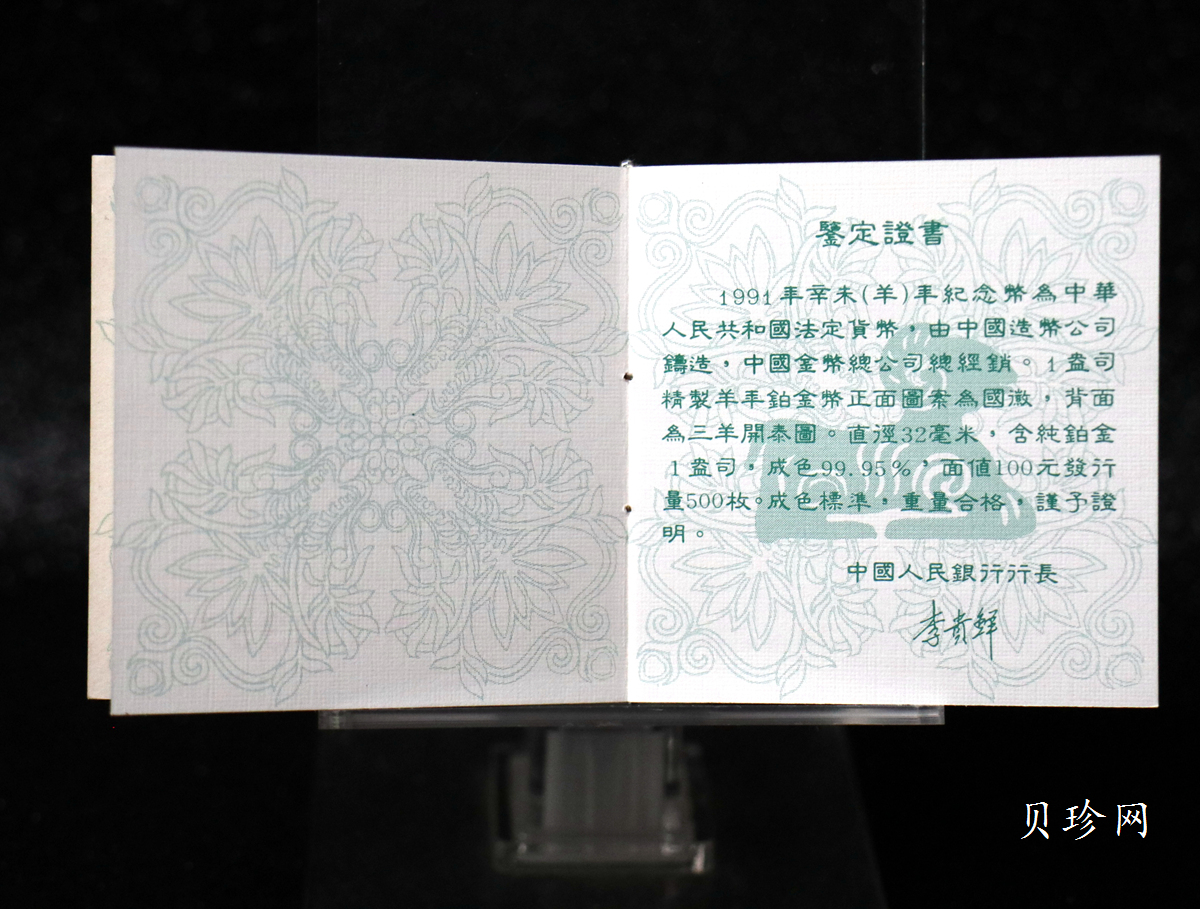 鑒定證書
1991年辛未(羊)年紀念幣為中華
人民共和國法定貨幣，由中國造幣公司
鑄造，中國金幣總公司總經銷。1盎司
精製羊年鉑金幣正面圖案為國徽，背面
為三羊開泰圖。直徑32毫米，含純鉑金
1盎司，成色99.95%，面值100元發行
量500枚。成色標準，重量合格，謹予證
明。
中國人民銀行行長
李貴鮮
贝珍网